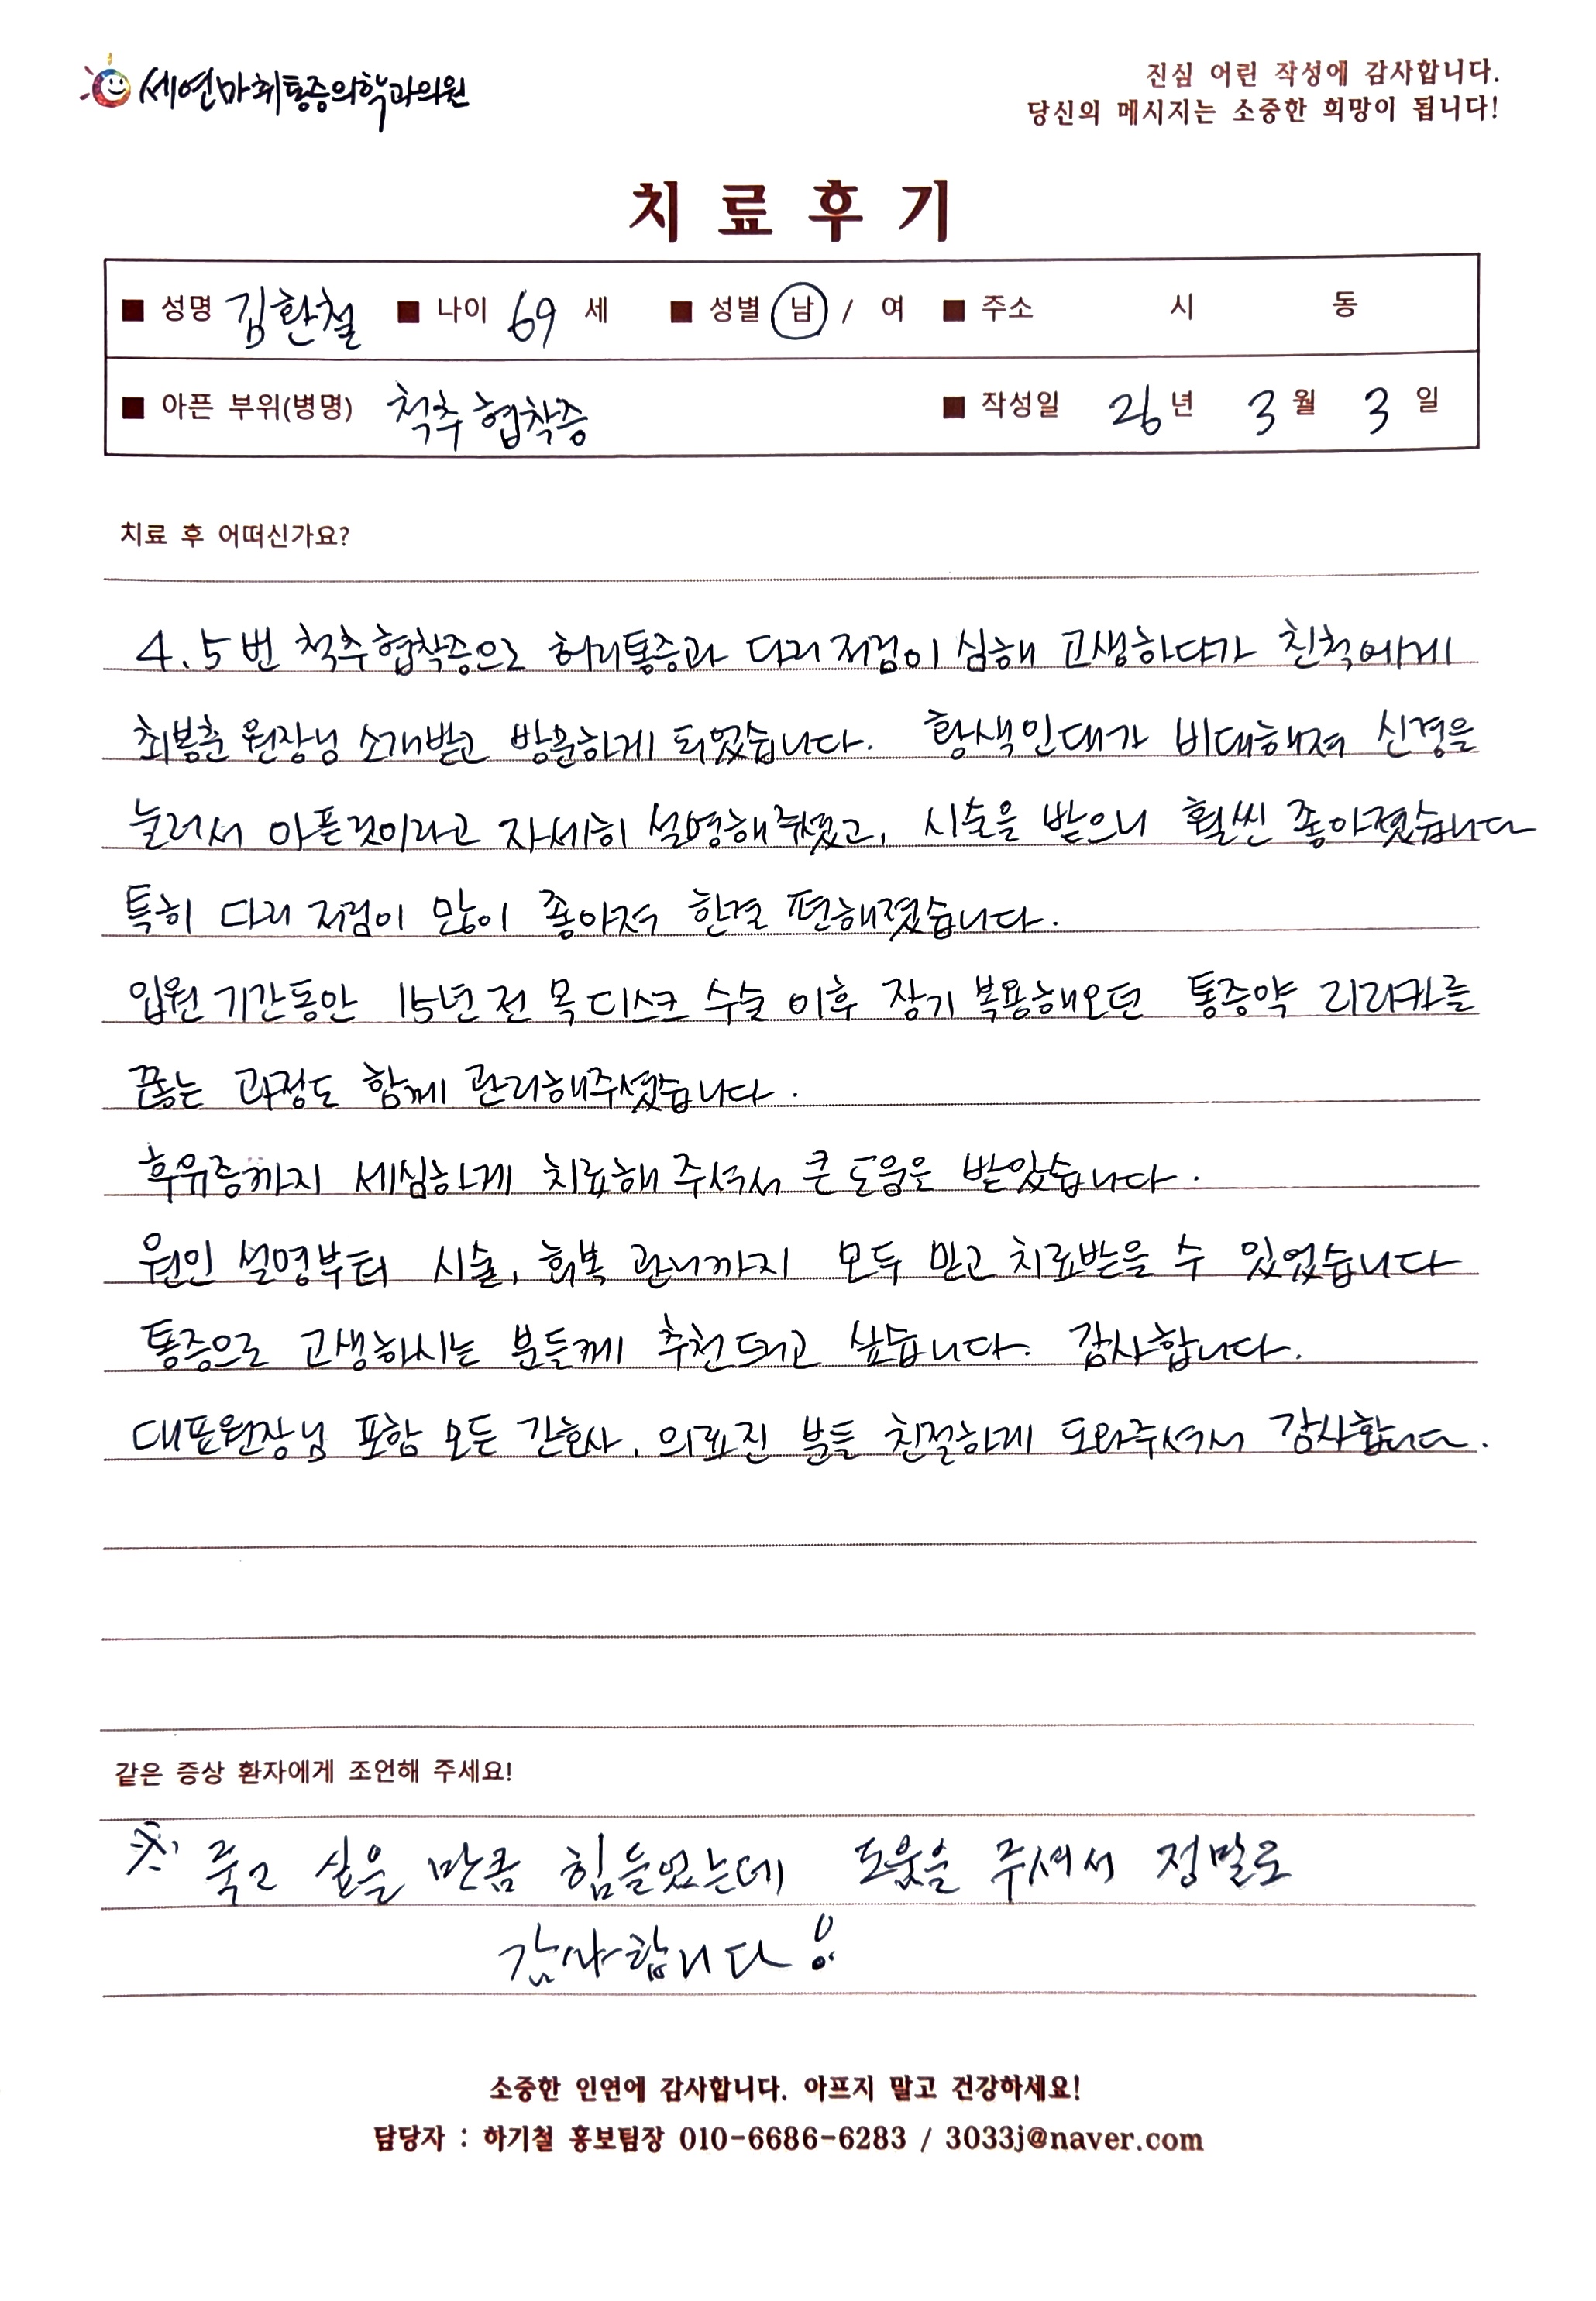 세연마취통증의학과의원
진심 어린 작성에 감사합니다.
당신의 메시지는 소중한 희망이 됩니다!
치료후기
■ 성명 김환철 ■ 나이 69 세 ■ 성별 남 / 여 ■ 주소 시 동
■ 아픈 부위(병명) 척추협착증 ■ 작성일 26년 3월 3일
치료 후 어떠신가요?
4.5번 척추협착증으로 허리통증과 다리저림이 심해 고생하다가 친척에게
최봉춘 원장님 소개받고 방문하게 되었습니다. 황색인대가 비대해져 신경을
눌러서 아픈것이라고 자세히 설명해주셨고, 시술을 받으니 훨씬 좋아졌습니다
특히 다리 저림이 많이 좋아져 한결 편해졌습니다.
입원 기간동안 15년 전 목 디스크 수술 이후 장기 복용해오던 통증약 리리카를
끊는 과정도 함께 관리해주셨습니다.
후유증까지 세심하게 치료해 주셔서 큰 도움을 받았습니다.
원인 설명부터 시술, 회복 관니까지 모두 믿고 치료받을 수 있었습니다
통증으로 고생하시는 분들께 추천드리고 싶습니다. 감사합니다.
대표원장님 포함 모든 간호사, 의료진 분들 친절하게 도와주셔서 감사합니다.
같은 증상 환자에게 조언해 주세요!
※ 죽고 싶을 만큼 힘들었는데 도움을 주셔서 정말로
감사합니다!
소중한 인연에 감사합니다. 아프지 말고 건강하세요!
담당자 : 하기철 홍보팀장 010-6686-6283 / 3033j@naver.com